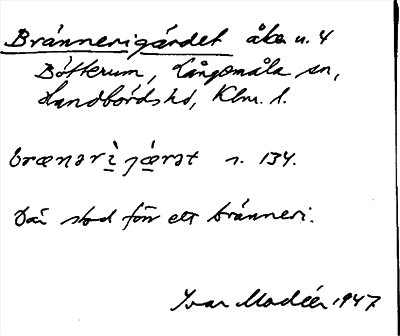 Brännerigärdet åker u. 4
Bötterum, Långemåla sn,
Handbörds hd, Klm. l.
brænərì jæ̀rət s. 134.
Där stod förr ett bränneri.
Ivar Modéer 1947